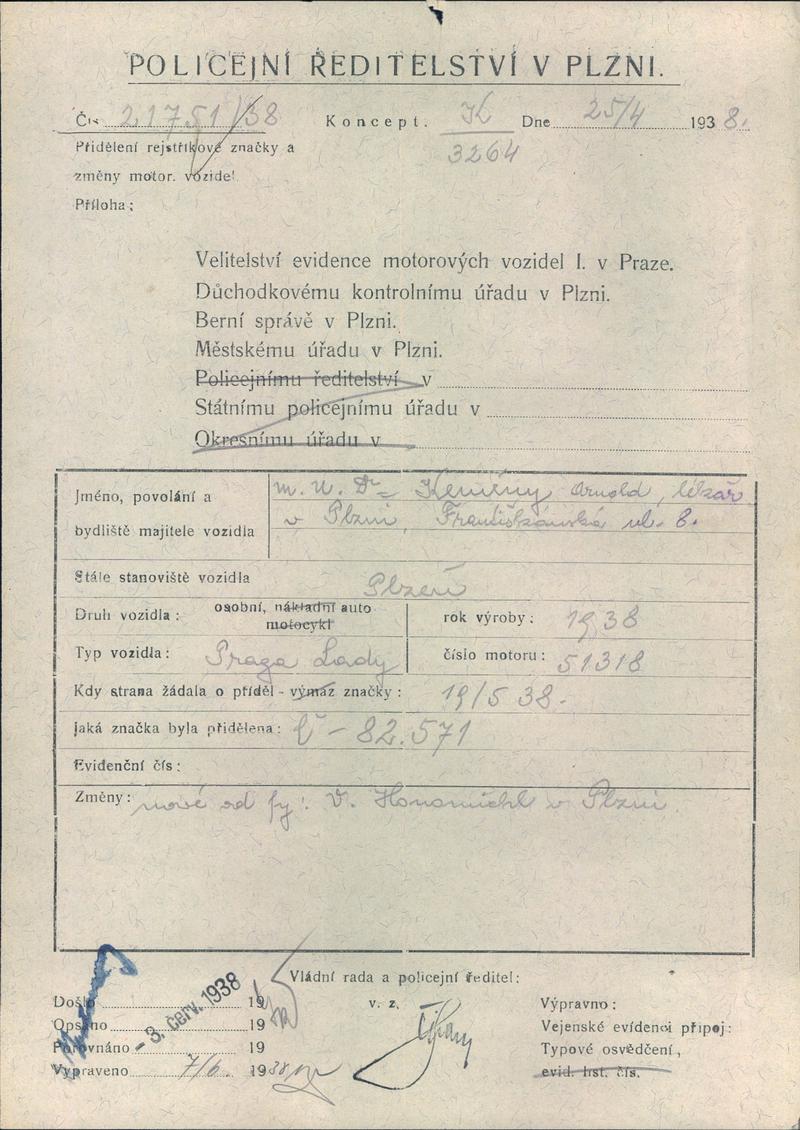 POLICEJNÍ ŘEDITELSTVÍ V PLZNI.
Čís 21751/38 Koncept. K Dne 25/4 1938.
3264
Přidělení rejstříkové značky a
změny motor. vozidel
Příloha:
Velitelství evidence motorových vozidel I. v Praze.
Důchodkovému kontrolnímu úřadu v Plzni.
Berní správě v Plzni.
Městskému úřadu v Plzni.
Policejnímu ředitelství v
Státnímu policejnímu úřadu v
Okresnímu úřadu v
Jméno, povolání a
bydliště majitele vozidla
M. U. Dr Kemény Arnold, lékař
v Plzni, Františkánská ul. 8.
Stálé stanoviště vozidla Plzeň
Druh vozidla: osobní, nákladní auto
motocykl
rok výroby: 1938
Typ vozidla: Praga Lady číslo motoru: 51318
Kdy strana žádala o příděl - výmaz značky: 19/5 38.
jaká značka byla přidělena: Č - 82.571
Evidenční čís:
Změny: nové od fy: V. Honomichl v Plzni.
Vládní rada a policejní ředitel:
v. z.
Došlo 19
Opsáno 19
Porovnáno 19
Vypraveno 7/6. 1938
- 3. červ. 1938
Výpravno:
Vejenské evidenci připoj:
Typové osvědčení,
evid. list. čís.